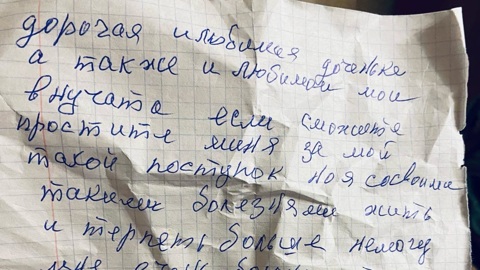 дорогая илюбимая доченька
а также и любимаи мои
внучата если сможите
простите миня за мой
такой поступок но я сосвоима
такими болезнями жить
и терпеть больше немогу
мне очень